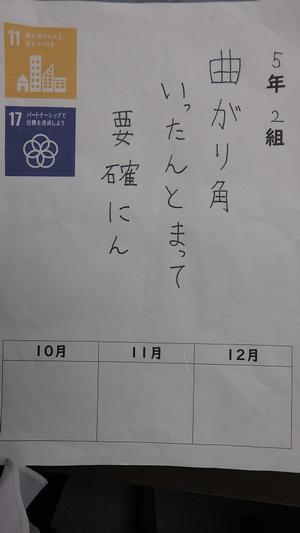 5年2組
曲がり角
いったんとまって
要確にん
11 住み続けられる
まちづくりを
17 パートナーシップで
目標を達成しよう
10月 11月 12月